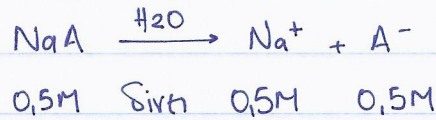 NaA H2O → Na⁺ + A⁻
0,5M 0,5M 0,5M